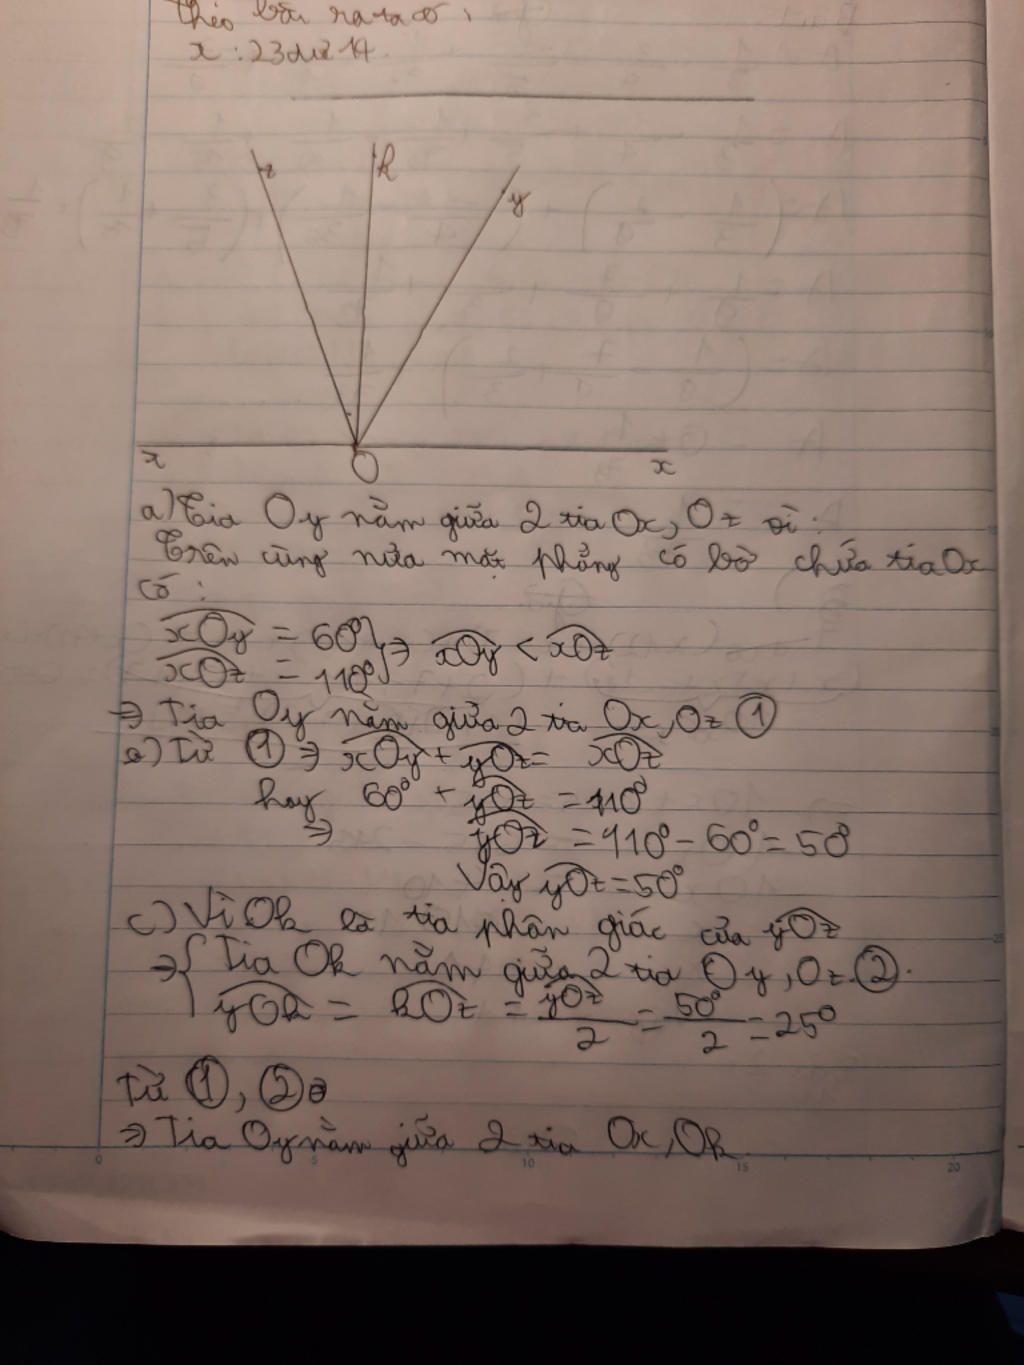 theo bài ra ta có:
x : 23 dư 14
z k y
x O x
a) Tia Oy nằm giữa 2 tia Ox, Oz vì:
Trên cùng nửa mặt phẳng có bờ chứa tia Ox
có:
xOy = 60° } ⇒ xOy < xOz
xOz = 110°
⇒ Tia Oy nằm giữa 2 tia Ox, Oz ①
) Từ ① ⇒ xOy + yOz = xOz
hay 60° + yOz = 110°
⇒ yOz = 110° - 60° = 50°
Vậy yOz = 50°
c) Vì Ok là tia phân giác của yOz
⇒ { Tia Ok nằm giữa 2 tia Oy, Oz. ②.
yOk = kOz = yOz/2 = 50°/2 = 25°
Từ ①, ②
⇒ Tia Oy nằm giữa 2 tia Ox, Ok
0 5 10 15 20